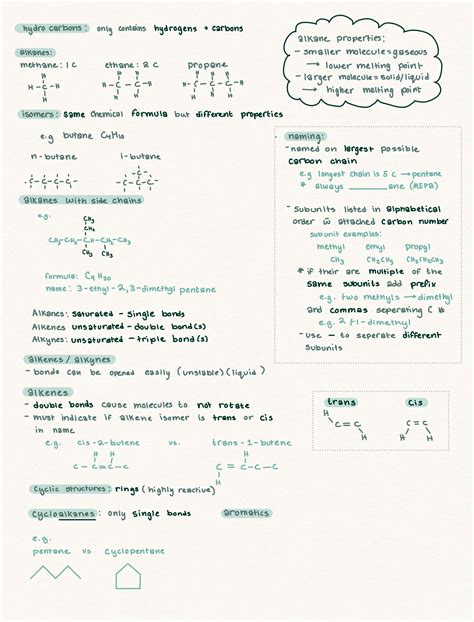 hydro carbons: only contains hydrogens + carbons
alkanes:
methane: 1 C ethane: 2 C propane
H H H H H H
H-C-H H-C-C-H H-C-C-C-H
H H H H H H
isomers: same chemical formula but different properties
e.g butane C4H10
n-butane i-butane
-C-C-C-C- -C-C-C-
-C-
alkanes with side chains
e.g.
CH3
CH2
CH3-CH2-C-CH-CH3
CH3 CH3
formula: C9H20
name: 3-ethyl-2,3-dimethyl pentane
Alkanes: saturated - single bonds
Alkenes unsaturated - double bond(s)
Alkynes: unsaturated - triple bond(s)
alkenes / alkynes
- bonds can be opened easily (unstable) (liquid)
alkenes
- double bonds cause molecules to not rotate
- must indicate if alkene isomer is trans or cis
in name
e.g. cis-2-butene vs. trans-1-butene
H H H
C-C=C-C C=C-C-C
H
cyclic structures: rings (highly reactive)
cycloalkanes: only single bonds aromatics
e.g.
pentane vs cyclopentane
alkane properties:
- smaller molecule=gaseous
→ lower melting point
- larger molecule=solid/liquid
→ higher melting point
naming:
- named on largest possible
carbon chain
e.g longest chain is 5 c → pentane
* always ______ane (MEPB)
- subunits listed in alphabetical
order w̄ attached carbon number
subunit examples:
methyl ethyl propyl
CH3 CH2CH3 CH2CH2CH3
* if their are multiple of the
same subunits add prefix
e.g. two methyls → dimethyl
and commas seperating C #s
e.g. 2,1-dimethyl
- use - to seperate different
subunits
trans cis
H
C=C C=C
H H H